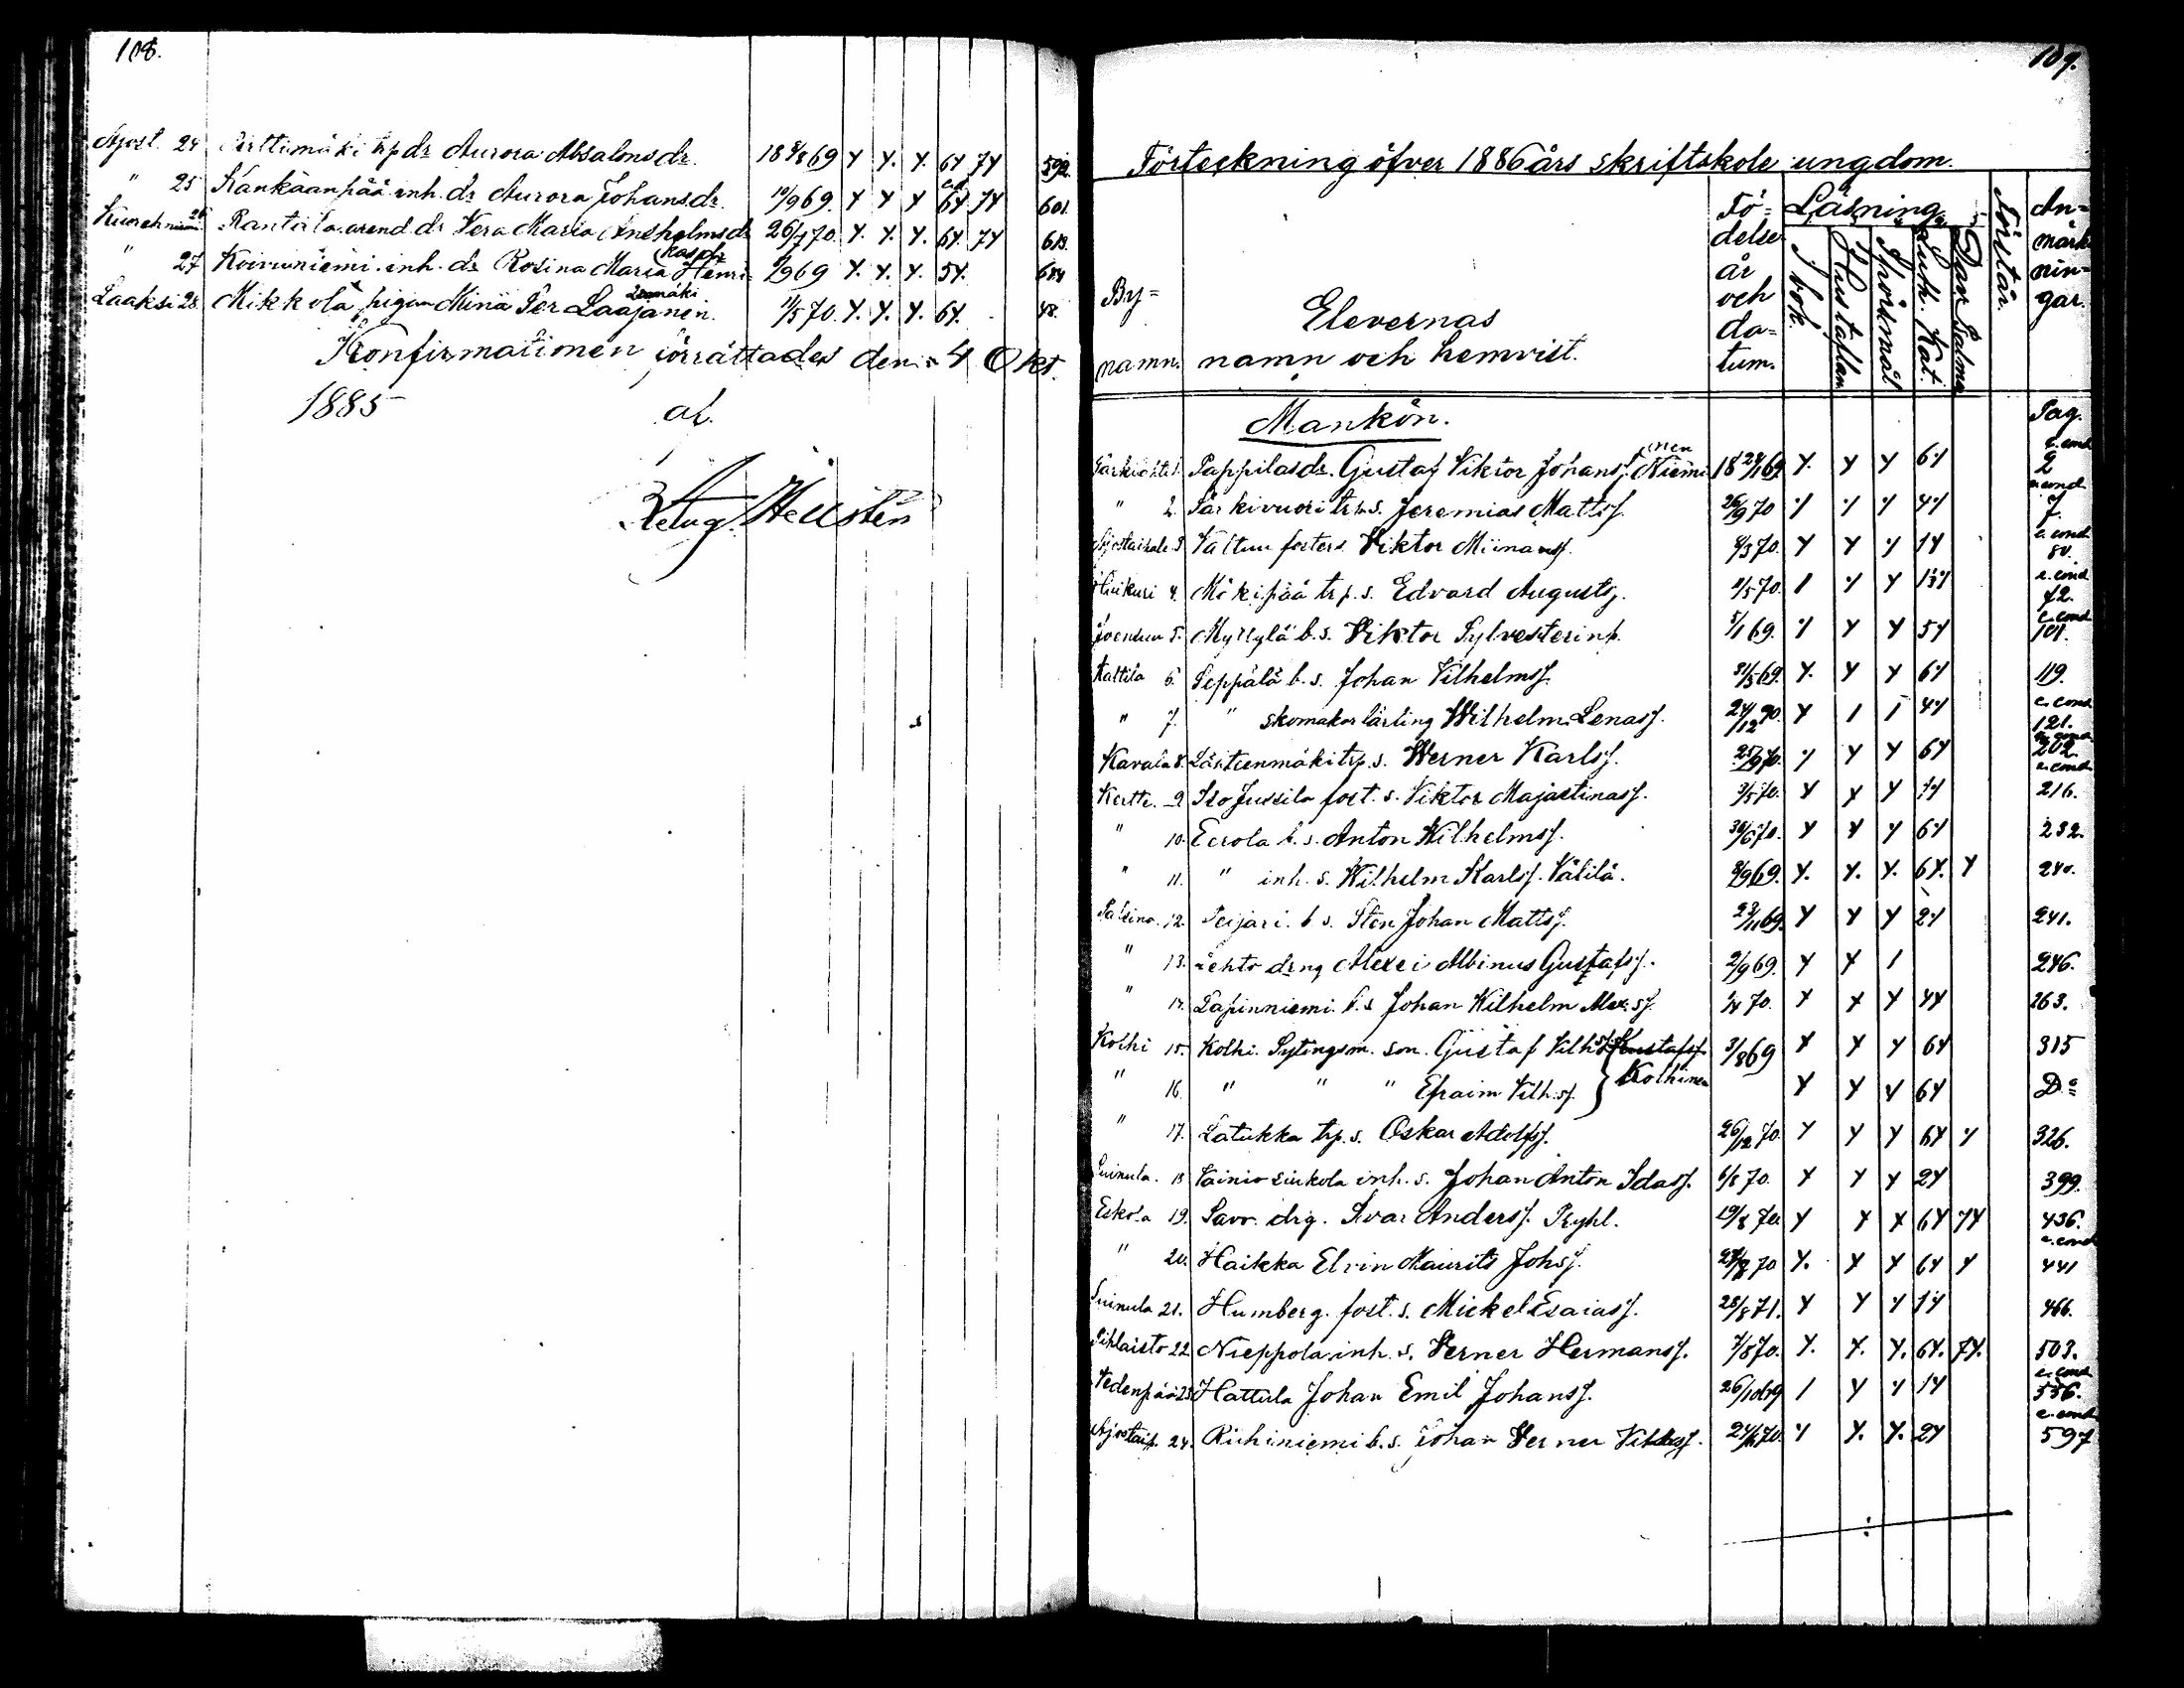 108.
Ajost. 24 Perttimäki trp dr Aurora Absalons dr. 18 8/8 69 y y. y. 6y 7y 592.
" 25 Kankaanpää inh. dr Aurora Johansdr. 10/9 69. y y y 6y 7y 601.
26 Rantala arend. dr Vera Maria Anshelmsdr 26/7 70. y. y. y. 6y. 7y 613.
" 27 Koivuniemi inh. dr Rosina Maria Henri 69 y. y. y. 5y.
Laaksi 28. Mikkola pigan Mina Per Laajanen. 11/5 70. y. y. y. 6y. 48.
Konfirmationen förrättades den 4 Okt.
1885 af.
Hellsten
109.
Förteckning öfver 1886 års skriftskole ungdom.
By=
namn.
Elevernas
namn och hemvist.
Fö=
delse
år
och
da=
tum.
Läsning
I bok.
Hustaflan
Spörsmål
Luth. Kat.
Dav. Psalmer
Förstår.
An=
märk
nin=
gar.
Mankön. Pag.
1. Pappilas dr. Gustaf Viktor Johans. Niemi nen 18 24/1 69. y. y y 6y e. cond 2
" 2. Särkivuori trp s. Jeremias Matts. 26/9 70 y y y 4y e. cond 7.
3 Valtuu foster s. Viktor Miinas. 4/3 70. y y y 1y e. cond 80.
4. Mäkipää trp. s. Edvard Augusts. 2/5 70. 1 y y e. cond 72.
Joensuu 5. Myllylä b. s. Viktor Sylvesterinp. 5/1 69. y y y 5y e. cond 101.
Kattila 6. Seppälä b. s. Johan Vilhelms. 31/5 69. y. y y 6y 119.
" 7. " skomakarlärling Wilhelm Lenas. 24/12 70. y 1 1 4y e. cond 121.
Kavala 8. trp. s. Werner Karls. y y y 6y 202.
Kertte. 9 Iso Jussila fost. s. Viktor Majastinas. 3/5 70. y y y 1y e. cond 216.
" 10. Eerola b. s. Anton Wilhelms. 30/6 70. y y y 6y 232.
" 11. " inh. s. Wilhelm Karls. Välilä. 69. y. y. y. 6y. y 240.
12. Peijari. b s. Sten Johan Matts. 23/11 69. y y y 2y 241.
" 13. Lehto drng Alexei Albinus Gustafs. 2/9 69. y y 1 246.
" 14. Lapinniemi b. s Johan Wilhelm Alex. s. 1/4 70. y y y 4y 263.
Kolhi 15. Kolhi. Sytingsm. son. Gustaf Vilh. s. Gustafs. 3/8 69 y y y 6y 315
" 16. " " " Efraim Vilh. s. } Kolhinen y y y 6y Do
" 17. Latukka trp. s. Oskar Adolfs. 26/12 70. y y y 6y y 326.
Suinula. 18 Vainio siukola inh. s. Johan Anton Idas. 6/8 70. y y y 2y 399.
Eskola 19. Savo. drg. Ivar Anders. Ryhl. 19/8 70. y y y 6y 7y 436.
" 20. Haikka Elvin Maurits Johs. 70 y. y y 6y y e. cond 441
Suinula 21. Humberg. fost. s. Mickel Esaias. 28/8 71. y y y 1y 466.
Pihlaisto 22. Nieppola inh. s. Verner Hermans. 7/8 70. y. y. y. 6y. 7y. 503.
Vedenpää 23. Hattula Johan Emil Johans. 26/10 69 1 y y 1y e. cond 556.
24. Riihiniemi b. s. Johan Verner 24/6 70. y y. y. 2y e. cond 597